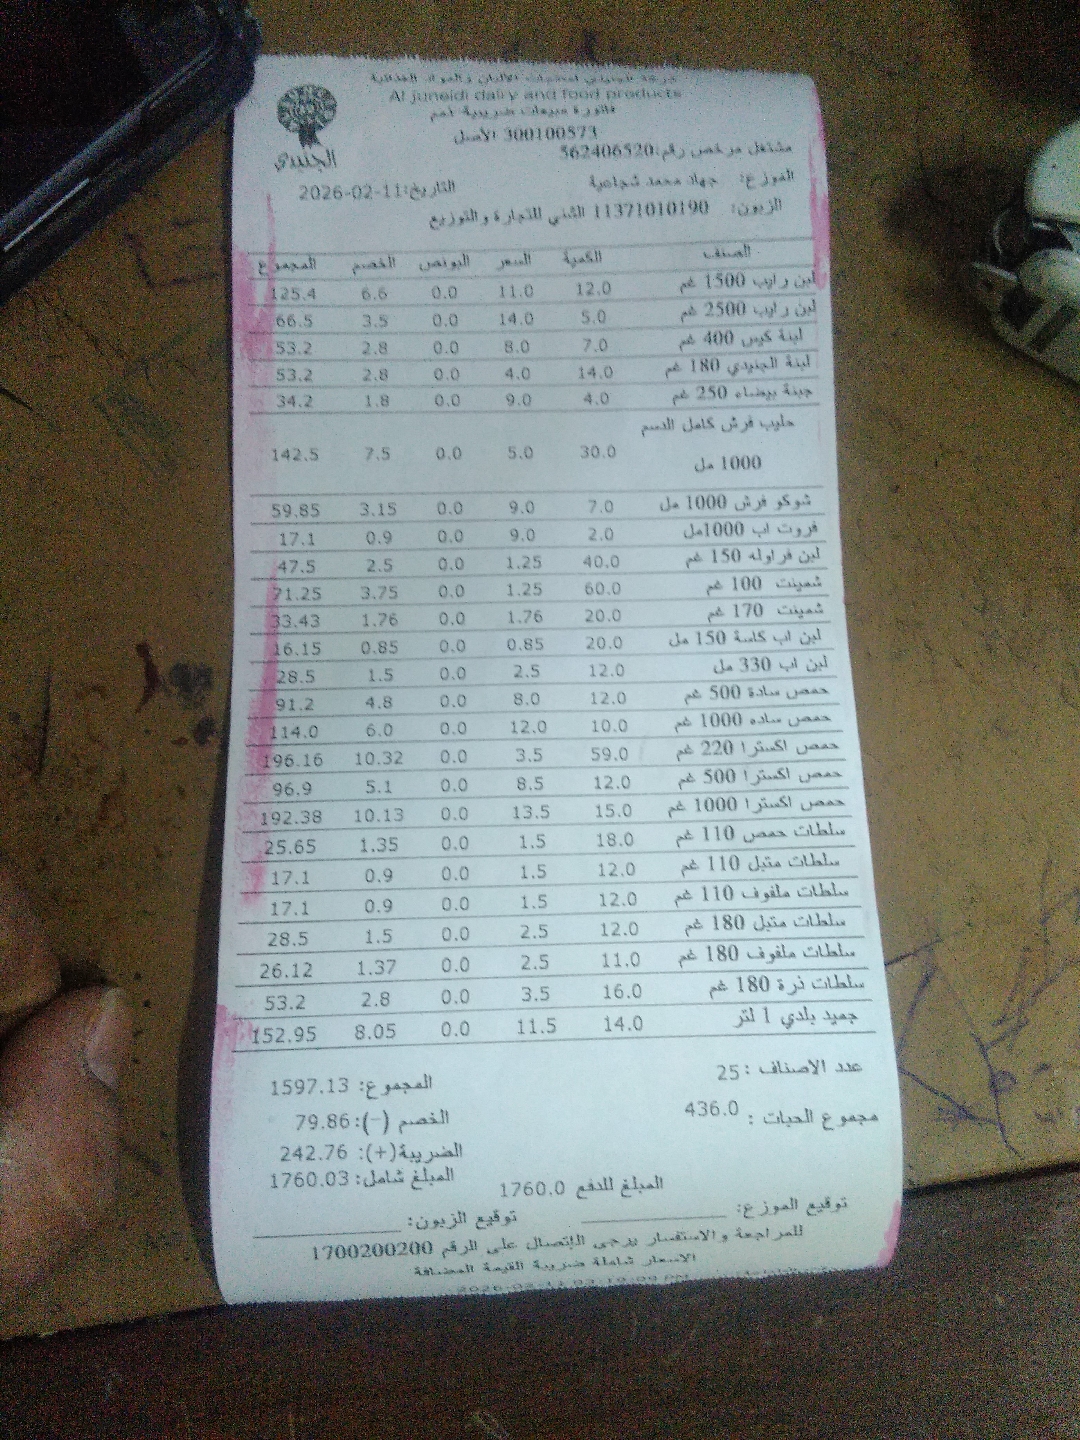 شركة الجنيدي لمنتجات الالبان والمواد الغذائية
Al juneidi dairy and food products
فاتورة مبيعات ضريبية ذمم
300100573 الأصل
مشتغل مرخص رقم:562406520
الجنيدي
الموزع: جهاد محمد شجاعية
التاريخ:2026-02-11
الزبون: 11371010190 الثني للتجارة والتوزيع
الصنف الكمية السعر البونص الخصم المجموع
لبن رايب 1500 غم 12.0 11.0 0.0 6.6 125.4
لبن رايب 2500 غم 5.0 14.0 0.0 3.5 66.5
لبنة كيس 400 غم 7.0 8.0 0.0 2.8 53.2
لبنة الجنيدي 180 غم 14.0 4.0 0.0 2.8 53.2
جبنة بيضاء 250 غم 4.0 9.0 0.0 1.8 34.2
حليب فرش كامل الدسم 1000 مل 30.0 5.0 0.0 7.5 142.5
شوكو فرش 1000 مل 7.0 9.0 0.0 3.15 59.85
فروت اب 1000مل 2.0 9.0 0.0 0.9 17.1
لبن فراوله 150 غم 40.0 1.25 0.0 2.5 47.5
شمينت 100 غم 60.0 1.25 0.0 3.75 71.25
شمينت 170 غم 20.0 1.76 0.0 1.76 33.43
لبن اب كاسة 150 مل 20.0 0.85 0.0 0.85 16.15
لبن اب 330 مل 12.0 2.5 0.0 1.5 28.5
حمص سادة 500 غم 12.0 8.0 0.0 4.8 91.2
حمص ساده 1000 غم 10.0 12.0 0.0 6.0 114.0
حمص اكسترا 220 غم 59.0 3.5 0.0 10.32 196.16
حمص اكسترا 500 غم 12.0 8.5 0.0 5.1 96.9
حمص اكسترا 1000 غم 15.0 13.5 0.0 10.13 192.38
سلطات حمص 110 غم 18.0 1.5 0.0 1.35 25.65
سلطات متبل 110 غم 12.0 1.5 0.0 0.9 17.1
سلطات ملفوف 110 غم 12.0 1.5 0.0 0.9 17.1
سلطات متبل 180 غم 12.0 2.5 0.0 1.5 28.5
سلطات ملفوف 180 غم 11.0 2.5 0.0 1.37 26.12
سلطات ذرة 180 غم 16.0 3.5 0.0 2.8 53.2
جميد بلدي 1 لتر 14.0 11.5 0.0 8.05 152.95
عدد الاصناف : 25
المجموع: 1597.13
مجموع الحبات : 436.0
الخصم (-): 79.86
الضريبة(+): 242.76
المبلغ شامل: 1760.03
المبلغ للدفع 1760.0
توقيع الموزع: ____________
توقيع الزبون: ____________
للمراجعة والاستفسار يرجى الإتصال على الرقم 1700200200
الاسعار شاملة ضريبة القيمة المضافة